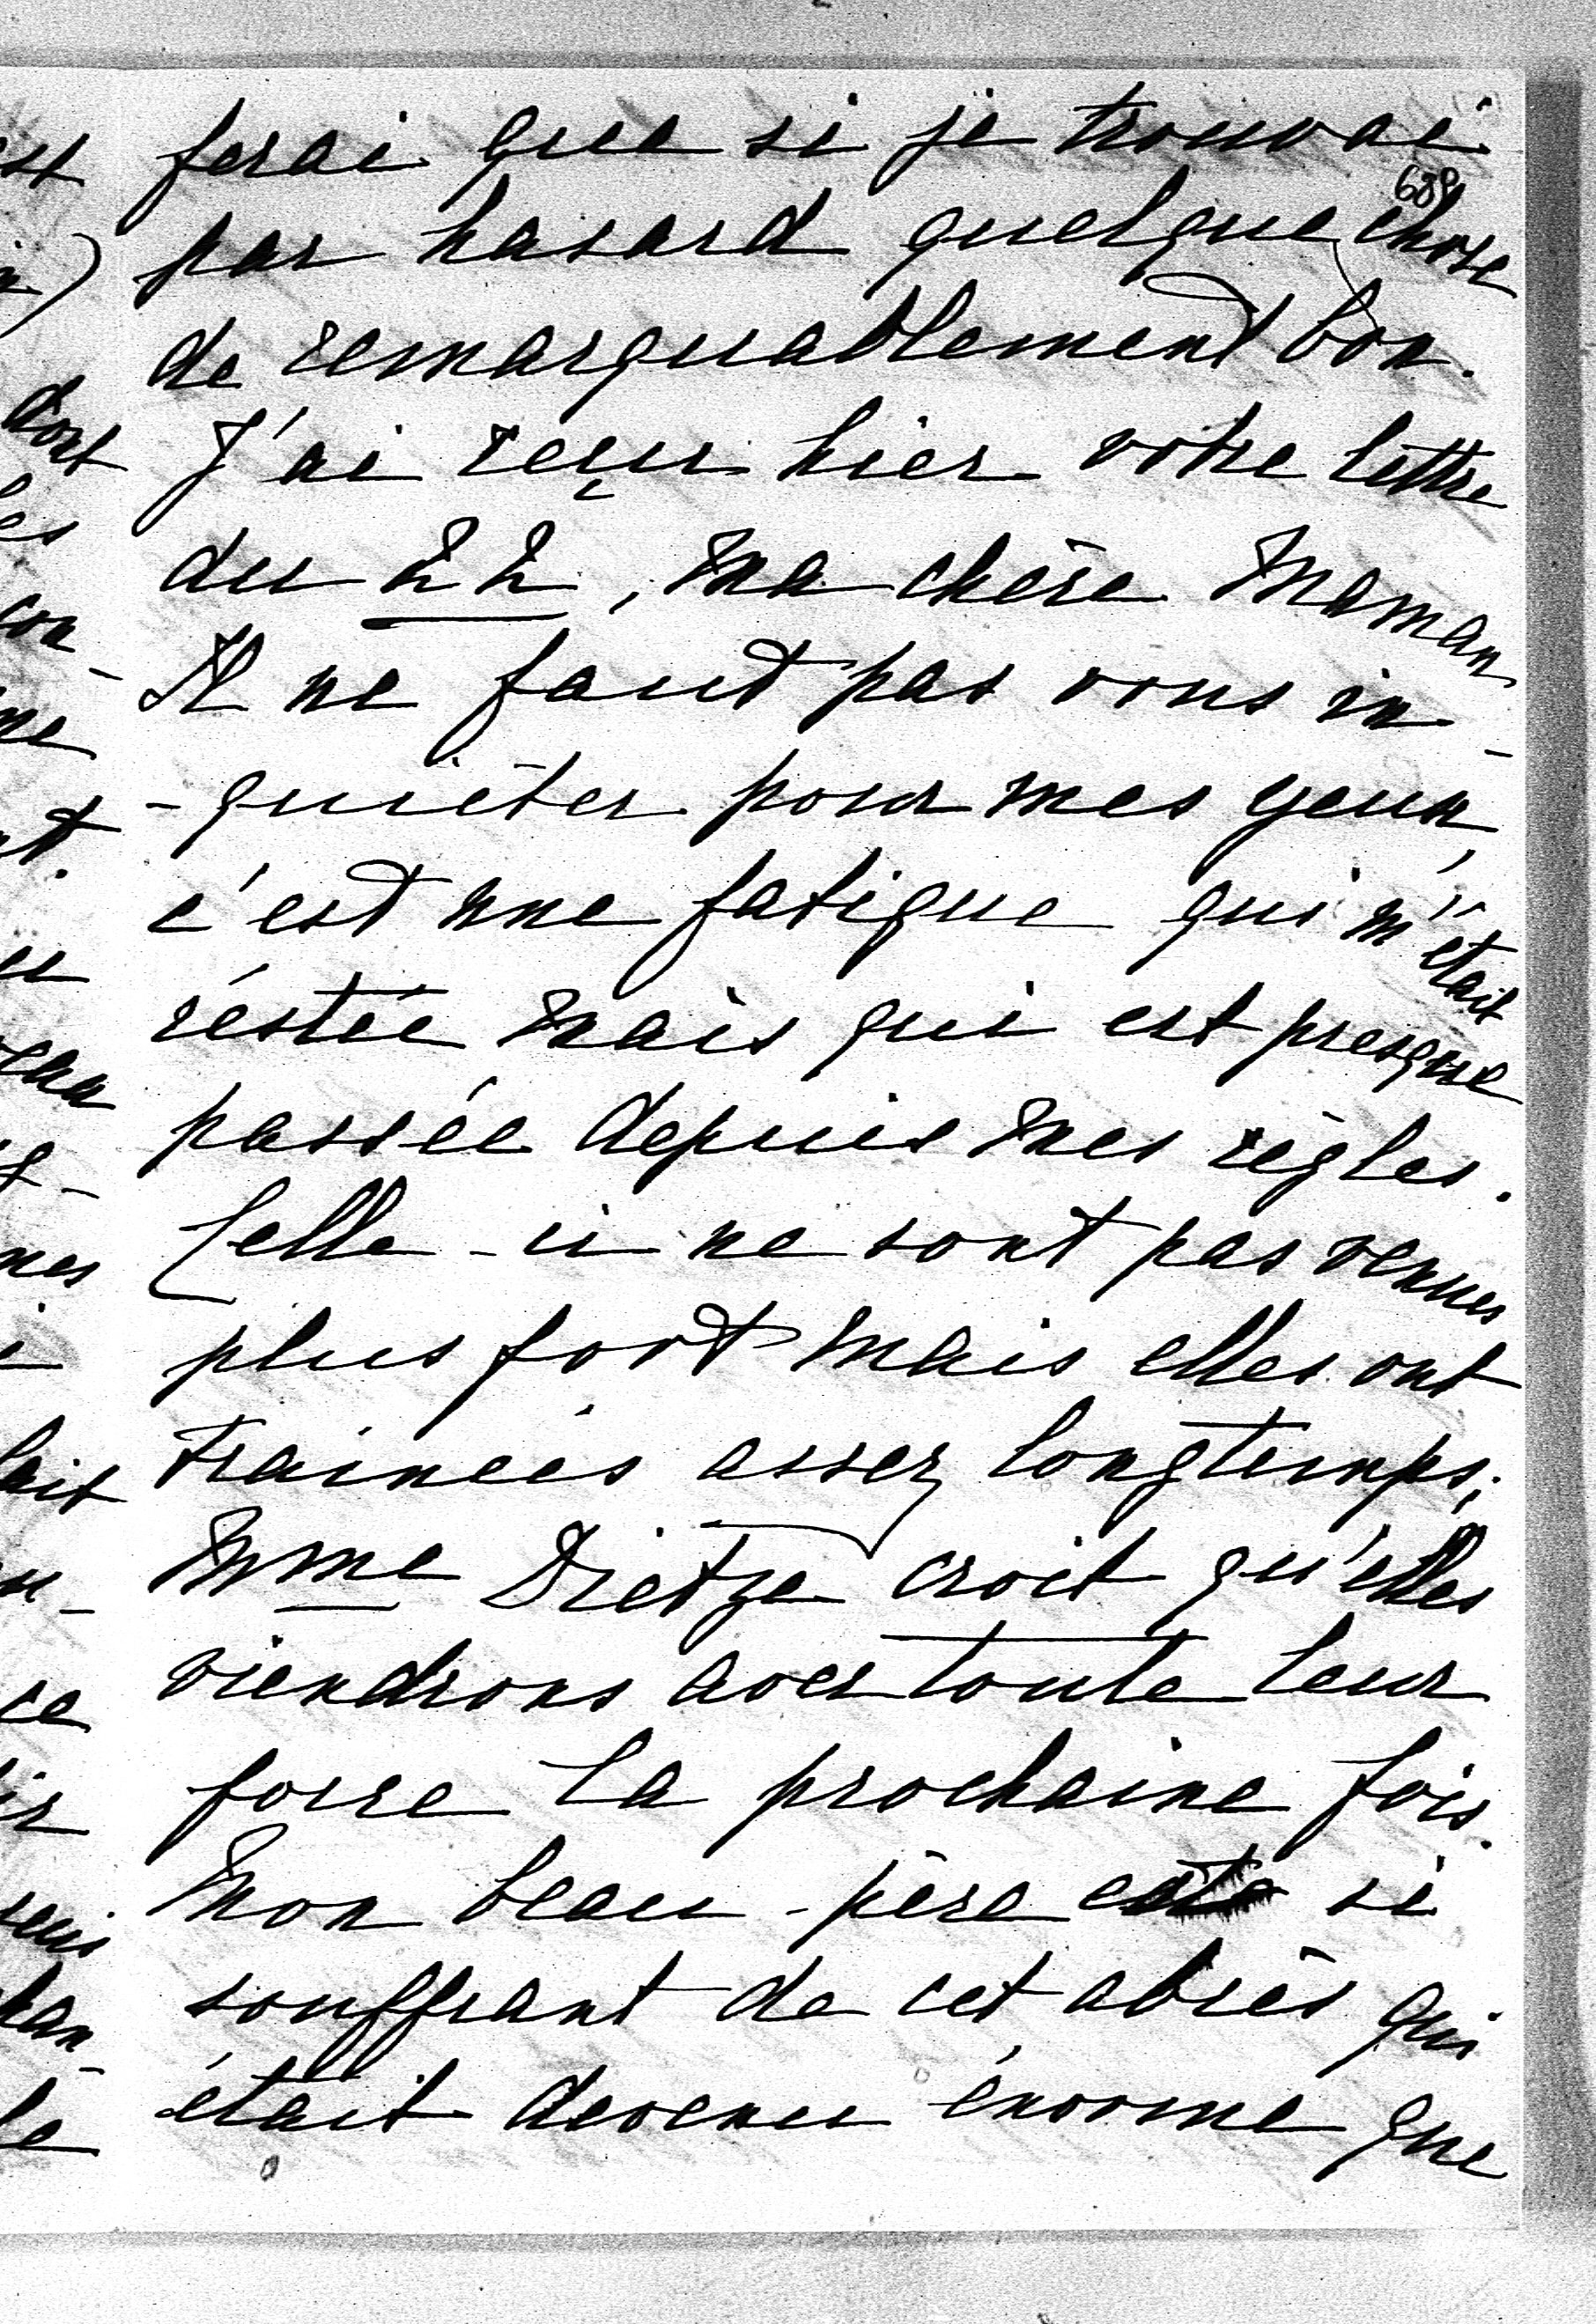 ferai que si je trouvai
689
par hasard quelque chose
de remarquablement bon.
J'ai reçu hier votre lettre
du 22, ma chère Maman
Il ne faut pas vous in-
-quiéter pour mes yeux,
c'est une fatigue qui m'était
réstée mais qui est presque
passée depuis mes règles.
Celle-ci ne sont pas venues
plus fort mais elles ont
trainées assez longtemps;
Mme Dietze croit qu'elles
viendrons avec toute leur
force la prochaine fois.
Mon beau-père est si
souffrant de cet abcès qui
était devenu énorme que